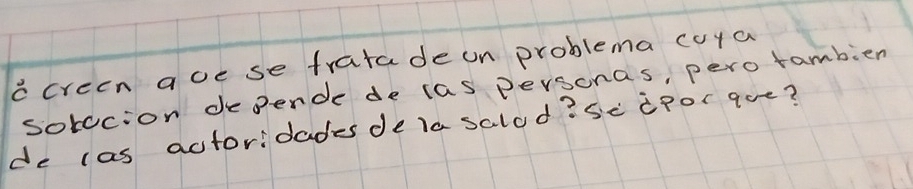 ¿creen que se trata de un problema cuya
solocion depende de las personas, pero tambien
de las actoridades de la salod? se ¿Por que?